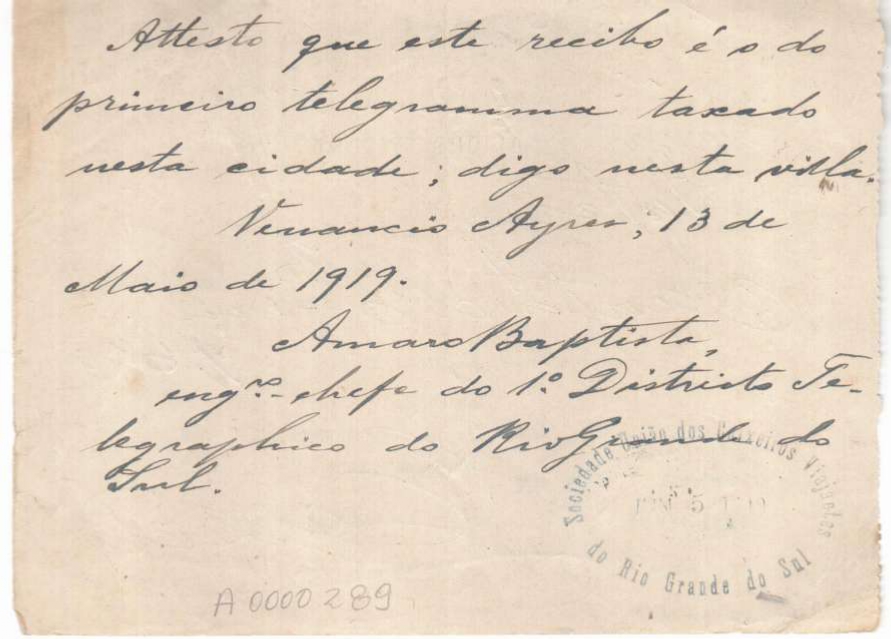 Attesto que este recibo é o do
primeiro telegramma taxado
nesta cidade; digo nesta villa.
Venancio Ayres, 13 de
Maio de 1919.
Amaro Baptista,
engro.- chefe do 1º. Districto Te-
legraphico do Rio Grande do
Sul.
Sociedade União dos Caixeiros Viajantes
do Rio Grande do Sul
A 0000289